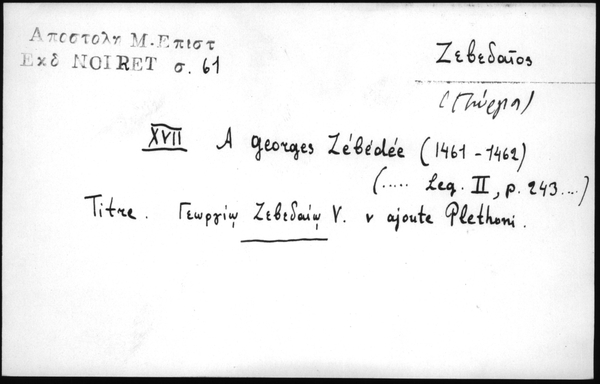 Αποστολη Μ. Επιστ
Εκδ NOIRET σ. 61
Ζεβεδαῖος
(Γιώργη)
XVII A georges Zébédée (1461-1462)
(..... Leg. II, p. 243....)
Titre. Γεωργίῳ Ζεβεδαίῳ V. v ajoute Plethoni.